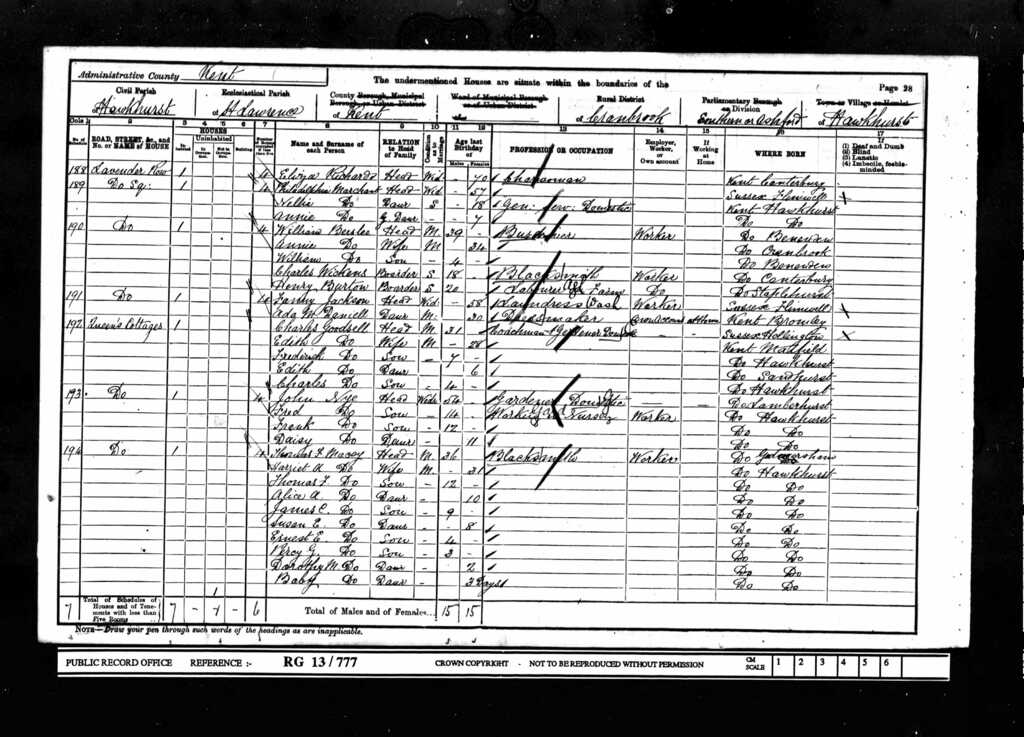 Administrative County Kent
The undermentioned Houses are situate within the boundaries of the
Page 28
Civil Parish
of Hawkhurst
Ecclesiastical Parish
of St Lawrence
County Borough, Municipal
Borough, or Urban District
of Kent
Ward of Municipal Borough
or of Urban District
of
Rural District
of Cranbrook
Parliamentary Borough
or Division
Southern or Ashford
Town or Village or Hamlet
of Hawkhurst
Cols 1 2 3 4 5 6 7 8 9 10 11 12 13 14 15 16 17
No. of Schedule
ROAD, STREET, &c., and No. or NAME of HOUSE
HOUSES
Inhabited
Uninhabited
In Occupation
Not in Occupation
Building
Name and Surname of each Person
RELATION to Head of Family
Condition as to Marriage
Age last Birthday of
Males Females
PROFESSION OR OCCUPATION
Employer, Worker, or Own account
If Working at Home
WHERE BORN
(1) Deaf and Dumb
(2) Blind
(3) Lunatic
(4) Imbecile, feeble-minded
188 Lavender Row 1 4 Eliza Richards Head Wid - 70 Charwoman Kent Canterbury
189 Do Sq: 1 4 Philadelphia Marchant Head Wid - 57 Sussex
Nellie Do Daur S - 18 Gen: Serv: Domestic Kent Hawkhurst
Annie Do G Daur - 7 Do Do
190 Do 1 4 William Head M 29 Worker Do Benenden
Annie Do Wife M - 24 Do Cranbrook
William Do Son - 4 Do Benenden
Charles Wickens Boarder S 18 Blacksmith Worker Do Canterbury
Henry Burton Boarder S 20 Labourer on Farm Do Do Staplehurst
191 Do 1 4 Fanny Jackson Head Wid - 58 Laundress Wash Worker Sussex
Ada M. Daniell Daur M - 30 Dressmaker Own account at home Kent Bromley
192 Queen's Cottages 1 Charles Goodsell Head M 31 Coachman & Gardener Domestic Sussex Hollington
Edith Do Wife M - 28 Kent Matfield
Frederick Do Son - 7 Do Hawkhurst
Edith Do Daur 6 Do Sandhurst
Charles Do Son - 4 Do Hawkhurst
193 Do 1 4 John Nye Head Wid 54 Gardener Domestic Do Lamberhurst
Fred Do Son - 14 Working in Nursery Worker Do Hawkhurst
Frank Do Son - 12 Do Do
Daisy Do Daur 11 Do Do
194 Do 1 4 Thomas F Macey Head M 36 Blacksmith Worker Do
Harriet A Do Wife M - 31 Do Hawkhurst
Thomas F Do Son - 12 Do Do
Alice A. Do Daur - 10 Do Do
James C. Do Son - 9 Do Do
Susan E. Do Daur - 8 Do Do
Ernest E. Do Son - 4 Do Do
Percy G. Do Son - 3 Do Do
Dorothy M. Do Daur - 2 Do Do
Baby Do Daur - 3 Days Do Do
7 Total of Schedules of Houses and of Tenements with less than Five Rooms 7 - 1 - 6 Total of Males and of Females... 15 15
NOTE—Draw your pen through such words of the headings as are inapplicable.
PUBLIC RECORD OFFICE REFERENCE :- RG 13/777 CROWN COPYRIGHT - NOT TO BE REPRODUCED WITHOUT PERMISSION CM SCALE 1 2 3 4 5 6